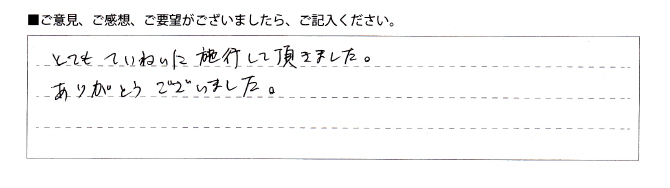 ■ご意見、ご感想、ご要望がございましたら、ご記入ください。
とても ていねいに 施行して頂きました。
ありがとう ございました。